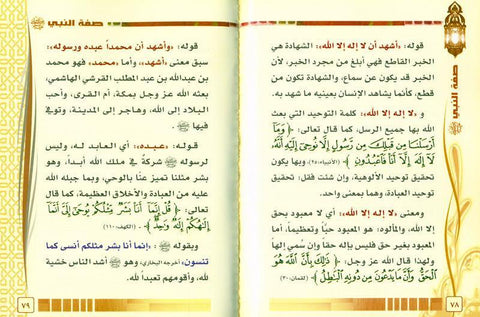 صفة النبي ﷺ
قوله: «أشهد أن لا إله إلا الله»: الشهادة هي
الخبر القاطع فهي أبلغ من مجرد الخبر، لأن
الخبر قد يكون عن سماع، والشهادة تكون من
قطع، كأنما يشاهد الإنسان بعينيه ما شهد به.
و «لا إله إلا الله»: كلمة التوحيد التي بعث
الله بها جميع الرسل، كما قال تعالى: ﴿وَمَآ
أَرْسَلْنَا مِن قَبْلِكَ مِن رَّسُولٍ إِلَّا نُوحِىٓ إِلَيْهِ أَنَّهُۥ
لَآ إِلَٰهَ إِلَّآ أَنَا۠ فَٱعْبُدُونِ﴾ (الأنبياء:٢٥)، وبها يكون
تحقيق توحيد الألوهية، وإن شئت فقل: تحقيق
توحيد العبادة، وهما بمعنى واحد.
ومعنى «لا إله إلا الله»: أي لا معبود بحق
إلا الله، والمألوه: هو المعبود حبّاً وتعظيماً، أما
المعبود بغير حق فليس بإله حقاً وإن سُمي إلهاً
ولهذا قال الله عز وجل: ﴿ذَٰلِكَ بِأَنَّ ٱللَّهَ هُوَ
ٱلْحَقُّ وَأَنَّ مَا يَدْعُونَ مِن دُونِهِ ٱلْبَٰطِلُ﴾ (لقمان:٣٠)
٧٨
صفة النبي ﷺ
قوله: «وأشهد أن محمداً عبده ورسوله»:
سبق معنى «أشهد»، وأما «محمد»، فهو محمد
بن عبدالله بن عبد المطلب القرشي الهاشمي،
بعثه الله عز وجل بمكة، أم القرى، وأحب
البلاد إلى الله، وهاجر إلى المدينة، وتوفي
فيها ﷺ.
قوله: «عبده»: أي العابد له، وليس
لرسوله ﷺ شركة في ملك الله أبداً، وهو
بشر مثلنا تميز عنا بالوحي، وبما جبله الله
عليه من العبادة والأخلاق العظيمة، كما قال
تعالى: ﴿قُلْ إِنَّمَآ أَنَا۠ بَشَرٌ مِّثْلُكُمْ يُوحَىٰٓ إِلَىَّ أَنَّمَآ
إِلَٰهُكُمْ إِلَٰهٌ وَٰحِدٌ﴾ (الكهف:١١٠)
وبقوله ﷺ: «إنما أنا بشر مثلكم أنسى كما
تنسون» أخرجه البخاري، وهو ﷺ أشد الناس خشية
لله، وأقومهم تعبداً لله.
٧٩